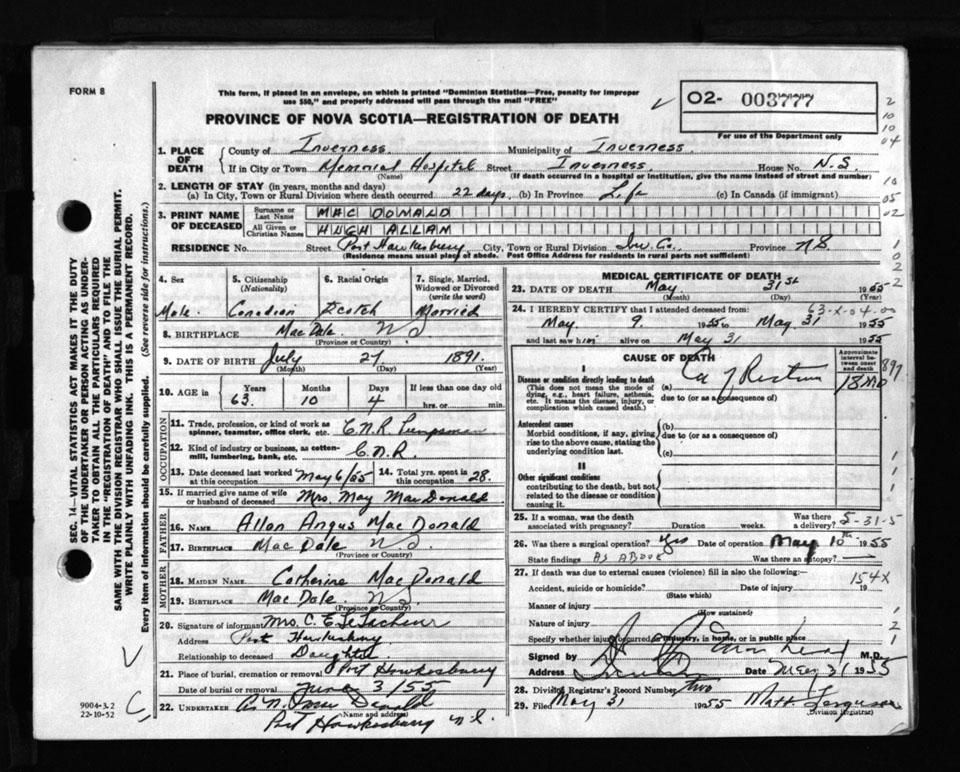 FORM 8
This form, if placed in an envelope, on which is printed "Dominion Statistics—Free, penalty for improper
use $50," and properly addressed will pass through the mail "FREE"
PROVINCE OF NOVA SCOTIA—REGISTRATION OF DEATH
02- 003777
For use of the Department only
2
10
10
04
10
05
02
1
0
2
2
SEC. 14—VITAL STATISTICS ACT MAKES IT THE DUTY
OF THE UNDERTAKER OR PERSON ACTING AS UNDER-
TAKER TO OBTAIN ALL THE PARTICULARS REQUIRED
IN THE "REGISTRATION OF DEATH" AND TO FILE THE
SAME WITH THE DIVISION REGISTRAR WHO SHALL ISSUE THE BURIAL PERMIT.
WRITE PLAINLY WITH UNFADING INK. THIS IS A PERMANENT RECORD.
Every item of information should be carefully supplied. (See reverse side for instructions.)
1. PLACE OF DEATH
County of Inverness Municipality of Inverness
If in City or Town Memorial Hospital Street Inverness House No. N.S
(Name) (If death occurred in a hospital or institution, give the name instead of street and number)
2. LENGTH OF STAY (in years, months and days)
(a) In City, Town or Rural Division where death occurred 22 days (b) In Province Life (c) In Canada (if immigrant)
3. PRINT NAME OF DECEASED
Surname or Last Name MAC DONALD
All Given or Christian Names HUGH ALLAN
RESIDENCE No. Street Port Hawkesbury City, Town or Rural Division Inv. Co. Province NS.
(Residence means usual place of abode. Post Office Address for residents in rural parts not sufficient)
4. Sex 5. Citizenship (Nationality) 6. Racial Origin 7. Single, Married, Widowed or Divorced (write the word)
Male. Canadian Scotch Married
8. BIRTHPLACE MacDale. NS
(Province or Country)
9. DATE OF BIRTH July 27 1891.
(Month) (Day) (Year)
10. AGE in Years Months Days If less than one day old
63. 10 4 hrs. or min.
OCCUPATION
11. Trade, profession, or kind of work as spinner, teamster, office clerk, etc. C.N.R Pumpsman
12. Kind of industry or business, as cotton-mill, lumbering, bank, etc. C.N.R.
13. Date deceased last worked at this occupation May 6/55 14. Total yrs. spent in this occupation 28.
15. If married give name of wife or husband of deceased Mrs. May MacDonald
FATHER
16. NAME Allan Angus MacDonald
17. BIRTHPLACE MacDale NS.
(Province or Country)
MOTHER
18. MAIDEN NAME Catherine MacDonald
19. BIRTHPLACE MacDale. NS
(Province or Country)
20. Signature of informant Mrs. C. E. LeTacheur
Address Port Hawkesbury
Relationship to deceased Daughter
21. Place of burial, cremation or removal Port Hawkesbury
Date of burial or removal June 3/55
22. UNDERTAKER
(Name and address)
Port Hawkesbury N.S.
9004-3.2
22-10-52
MEDICAL CERTIFICATE OF DEATH
23. DATE OF DEATH May. 31st 1955
(Month) (Day) (Year)
63-X-04-00
24. I HEREBY CERTIFY that I attended deceased from:
May 9. 1955 to May. 31 1955
and last saw him alive on May 31 1955
CAUSE OF DEATH
Approximate interval between onset and death
I
Disease or condition directly leading to death
(This does not mean the mode of dying, e.g., heart failure, asthenia. etc. It means the disease, injury, or complication which caused death.)
(a) Ca of Rectum 18 mo
due to (or as a consequence of)
Antecedent causes
Morbid conditions, if any, giving rise to the above cause, stating the underlying condition last.
(b)
due to (or as a consequence of)
(c)
II
Other significant conditions
contributing to the death, but not related to the disease or condition causing it.
25. If a woman, was the death associated with pregnancy? Duration weeks. Was there a delivery? 5-31-5
26. Was there a surgical operation? Yes Date of operation May 10th 1955
State findings AS ABOVE Was there an autopsy?
27. If death was due to external causes (violence) fill in also the following:— 154X
Accident, suicide or homicide? Date of injury 19
(State which)
Manner of injury
(How sustained)
Nature of injury
Specify whether injury occurred in industry, in home, or in public place
Signed by M.D.
Address Date May 31 1955
28. Division Registrar's Record Number Two
29. Filed May 31 1955 Matt. Ferguson
(Division Registrar)